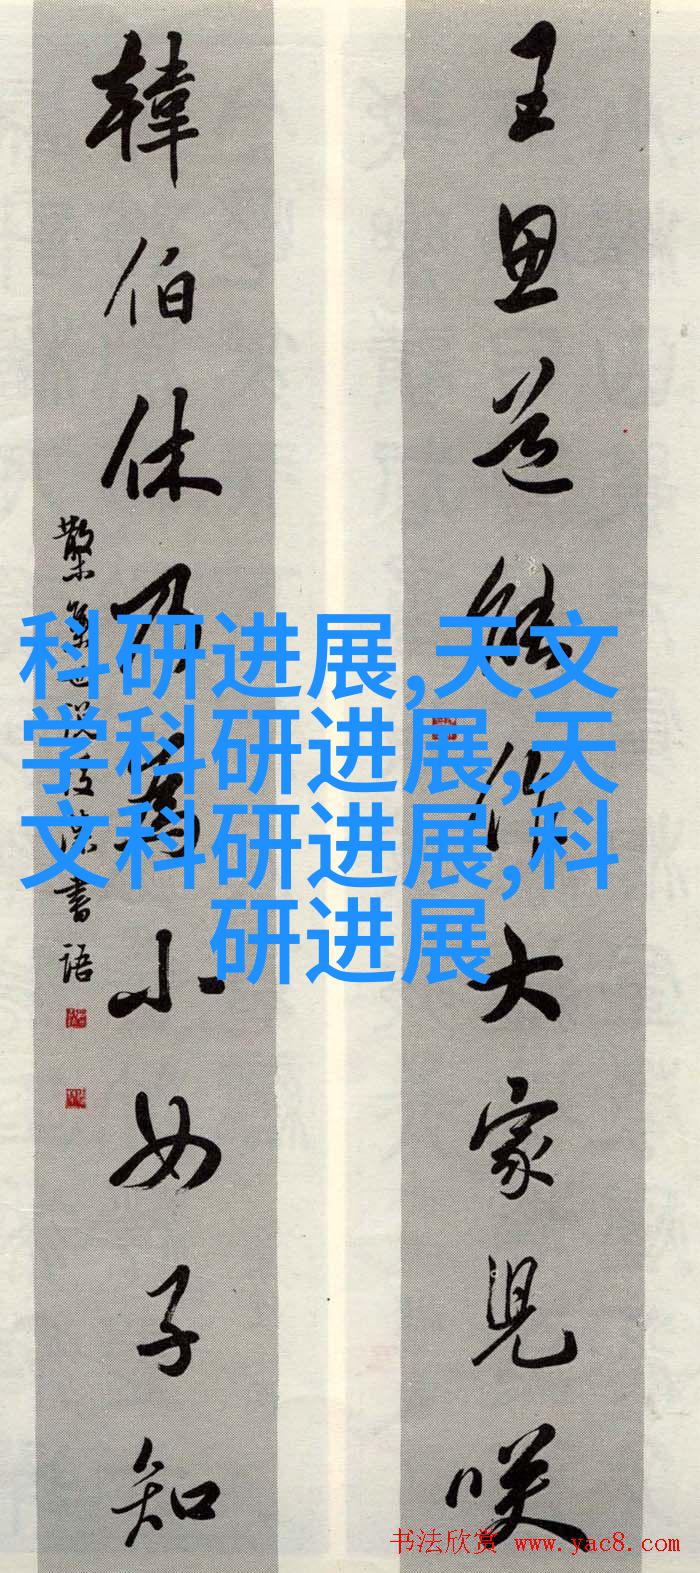 王思道能作大家兒咲
韓伯休乃為小女子知
書語
科研进展,天文
学科研进展,天
文科研进展,科
研进展
书法欣赏 www.yac8.com